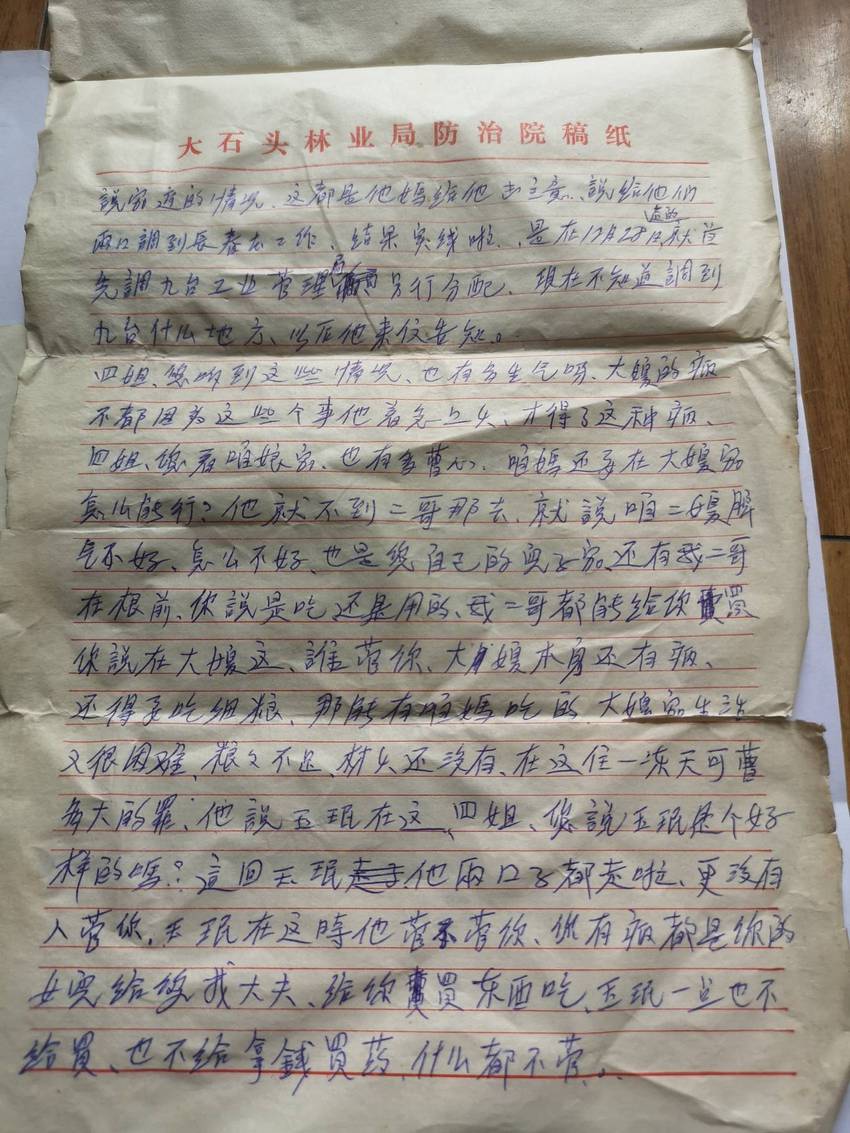 大石头林业局防治院稿纸
說家这的情况、这都是他媽给他出主意、說给他们
兩口調到长春去工作、结果实线啦、是在12月28日就
先調九台工业管理局另行分配、現在不知道調到
九台什么地方、以后他来信告知。
四姐、您听到这些情况、也有多生气嗎、大嫂的病
不都因为这些个事他着急上火、才得了这种病、
四姐、您看咱娘家、也有多曹心、咱媽还要在大嫂家
怎么能行？他就不到二哥那去、就說咱二嫂脾
气不好、怎么不好、也是您自己的兒子家还有我二哥
在根前、你說是吃还是用的、我二哥都能给你買
你說在大嫂这、誰管你、大嫂本身还有病、
还得要吃细粮、那能有咱媽吃的、大嫂家生活
又很困难、粮又不足、材火还没有、在这住一冻天可曹
多大的罪、他說玉珉在这、四姐、您說玉珉是个好
样的嗎？這回玉珉他兩口子都走啦、更没有
人管你、玉珉在这時他管不管你、你有病都是你的
女兒给您找大夫、给你買东西吃、玉珉一点也不
给買、也不给拿錢買药、什么都不管。